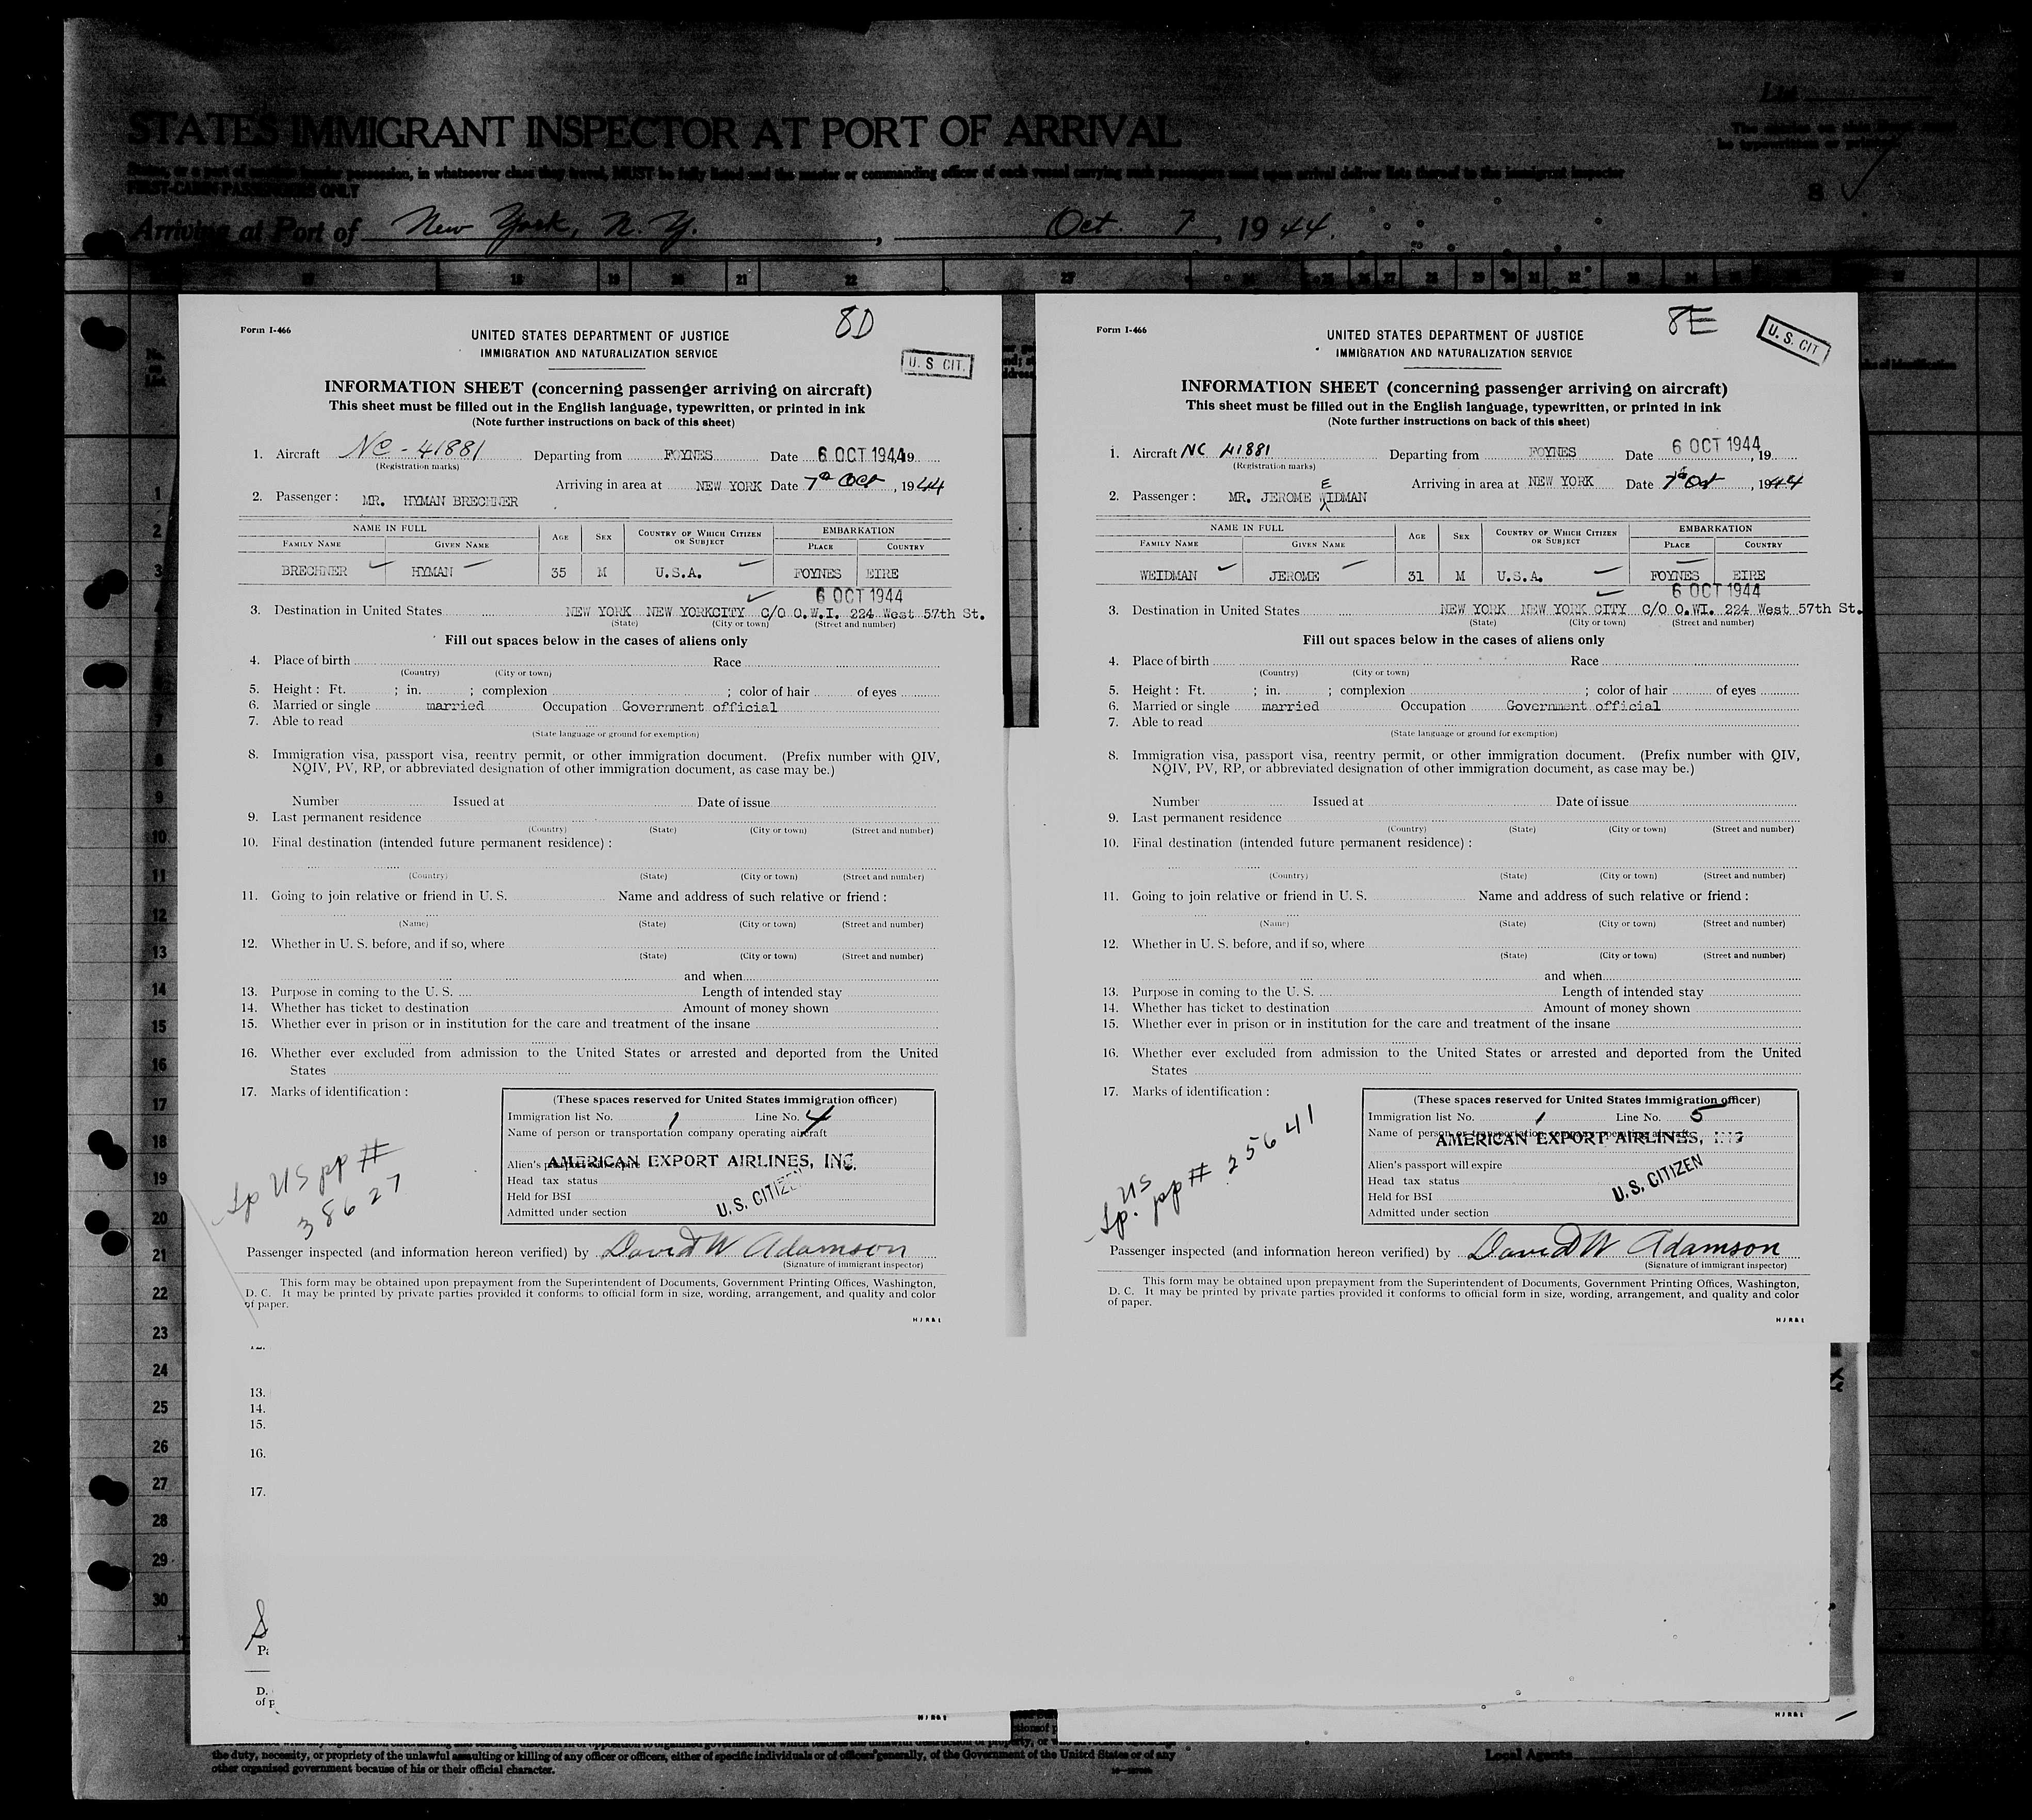 STATES IMMIGRANT INSPECTOR AT PORT OF ARRIVAL
List
in whatsoever class they travel, MUST be fully listed and the master or commanding officer of each vessel carrying such passengers must upon arrival deliver lists thereof to the immigrant inspector
FIRST-CABIN PASSENGERS ONLY
8
Arriving at Port of New York, N. Y. , Oct. 7, 1944.
18 19 20 21 22 23
8D
Form I-466
UNITED STATES DEPARTMENT OF JUSTICE
IMMIGRATION AND NATURALIZATION SERVICE
U. S CIT.
INFORMATION SHEET (concerning passenger arriving on aircraft)
This sheet must be filled out in the English language, typewritten, or printed in ink
(Note further instructions on back of this sheet)
1. Aircraft NC-41881 Departing from FOYNES Date 6 OCT 1944, 19
(Registration marks)
Arriving in area at NEW YORK Date 7th Oct, 1944
2. Passenger: MR. HYMAN BRECHNER
NAME IN FULL
FAMILY NAME GIVEN NAME AGE SEX COUNTRY OF WHICH CITIZEN OR SUBJECT EMBARKATION PLACE COUNTRY
BRECHNER HYMAN 35 M U.S.A. FOYNES EIRE
6 OCT 1944
3. Destination in United States NEW YORK NEW YORKCITY C/O O.W.I. 224 West 57th St.
(State) (City or town) (Street and number)
Fill out spaces below in the cases of aliens only
4. Place of birth Race
(Country) (City or town)
5. Height: Ft. ; in. ; complexion ; color of hair of eyes
6. Married or single married Occupation Government official
7. Able to read
(State language or ground for exemption)
8. Immigration visa, passport visa, reentry permit, or other immigration document. (Prefix number with QIV,
NQIV, PV, RP, or abbreviated designation of other immigration document, as case may be.)
Number Issued at Date of issue
9. Last permanent residence
(Country) (State) (City or town) (Street and number)
10. Final destination (intended future permanent residence):
(Country) (State) (City or town) (Street and number)
11. Going to join relative or friend in U. S. Name and address of such relative or friend:
(Name) (State) (City or town) (Street and number)
12. Whether in U. S. before, and if so, where
(State) (City or town) (Street and number)
and when
13. Purpose in coming to the U. S. Length of intended stay
14. Whether has ticket to destination Amount of money shown
15. Whether ever in prison or in institution for the care and treatment of the insane
16. Whether ever excluded from admission to the United States or arrested and deported from the United
States
17. Marks of identification:
Sp US pp #
38627
(These spaces reserved for United States immigration officer)
Immigration list No. 1 Line No. 4
Name of person or transportation company operating aircraft
AMERICAN EXPORT AIRLINES, INC.
Alien's passport will expire
Head tax status
Held for BSI
Admitted under section
U.S. CITIZEN
Passenger inspected (and information hereon verified) by David W Adamson
(Signature of immigrant inspector)
This form may be obtained upon prepayment from the Superintendent of Documents, Government Printing Offices, Washington,
D. C. It may be printed by private parties provided it conforms to official form in size, wording, arrangement, and quality and color
of paper.
HJR&L
8E
Form I-466
UNITED STATES DEPARTMENT OF JUSTICE
IMMIGRATION AND NATURALIZATION SERVICE
U. S. CIT
INFORMATION SHEET (concerning passenger arriving on aircraft)
This sheet must be filled out in the English language, typewritten, or printed in ink
(Note further instructions on back of this sheet)
1. Aircraft NC 41881 Departing from FOYNES Date 6 OCT 1944, 19
(Registration marks)
Arriving in area at NEW YORK Date 7th Oct, 1944
2. Passenger: MR. JEROME WEIDMAN
NAME IN FULL
FAMILY NAME GIVEN NAME AGE SEX COUNTRY OF WHICH CITIZEN OR SUBJECT EMBARKATION PLACE COUNTRY
WEIDMAN JEROME 31 M U.S.A. FOYNES EIRE
6 OCT 1944
3. Destination in United States NEW YORK NEW YORK CITY C/O O.WI. 224 West 57th St.
(State) (City or town) (Street and number)
Fill out spaces below in the cases of aliens only
4. Place of birth Race
(Country) (City or town)
5. Height: Ft. ; in. ; complexion ; color of hair of eyes
6. Married or single married Occupation Government official
7. Able to read
(State language or ground for exemption)
8. Immigration visa, passport visa, reentry permit, or other immigration document. (Prefix number with QIV,
NQIV, PV, RP, or abbreviated designation of other immigration document, as case may be.)
Number Issued at Date of issue
9. Last permanent residence
(Country) (State) (City or town) (Street and number)
10. Final destination (intended future permanent residence):
(Country) (State) (City or town) (Street and number)
11. Going to join relative or friend in U. S. Name and address of such relative or friend:
(Name) (State) (City or town) (Street and number)
12. Whether in U. S. before, and if so, where
(State) (City or town) (Street and number)
and when
13. Purpose in coming to the U. S. Length of intended stay
14. Whether has ticket to destination Amount of money shown
15. Whether ever in prison or in institution for the care and treatment of the insane
16. Whether ever excluded from admission to the United States or arrested and deported from the United
States
17. Marks of identification:
US
Sp. pp # 25641
(These spaces reserved for United States immigration officer)
Immigration list No. 1 Line No. 5
Name of person or transportation company operating aircraft
AMERICAN EXPORT AIRLINES, INC
Alien's passport will expire
Head tax status
Held for BSI
Admitted under section
U.S. CITIZEN
Passenger inspected (and information hereon verified) by David W Adamson
(Signature of immigrant inspector)
This form may be obtained upon prepayment from the Superintendent of Documents, Government Printing Offices, Washington,
D. C. It may be printed by private parties provided it conforms to official form in size, wording, arrangement, and quality and color
of paper.
HJR&L
1
2
3
8
9
10
11
12
13
14
15
16
17
18
19
20
21
22
23
24
25
26
27
28
29
30
13.
14.
15.
16.
17.
D.
of p
HJR&L
HJR&L
the duty, necessity, or propriety of the unlawful assaulting or killing of any officer or officers, either of specific individuals or of officers generally, of the Government of the United States or of any
other organized government because of his or their official character.
Local Agents